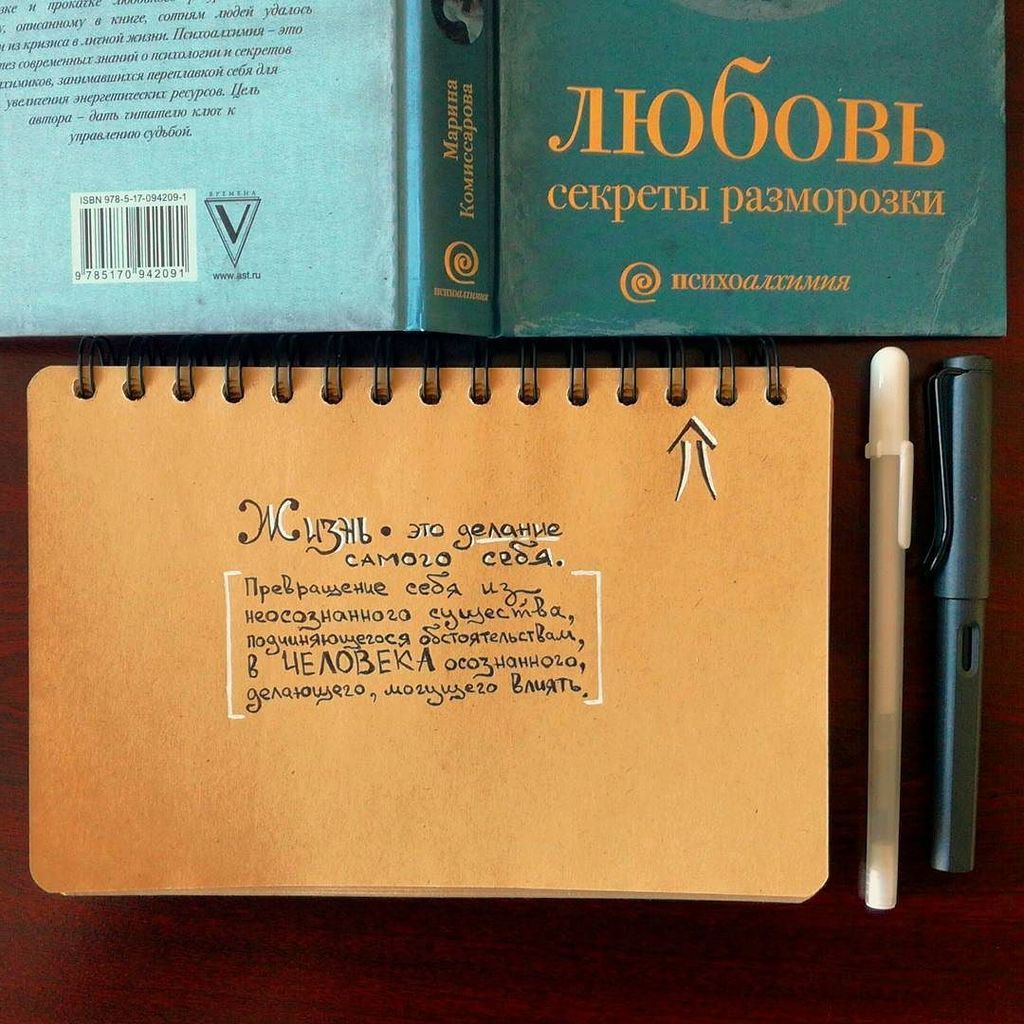 и прокачке любовного
описанному в книге, сотням людей удалось
из кризиса в личной жизни. Психоалхимия – это
современных знаний о психологии и секретов
занимавшихся переплавкой себя для
увеличения энергетических ресурсов. Цель
автора – дать читателю ключ к
управлению судьбой.
ISBN 978-5-17-094209-1
9 785170 942091
ВРЕМЕНА
www.ast.ru
Марина
Комиссарова
психоалхимия
любовь
секреты разморозки
психоалхимия
Жизнь • это делание
самого себя.
[Превращение себя из
неосознанного существа,
подчиняющегося обстоятельствам,
в ЧЕЛОВЕКА осознанного,
делающего, могущего влиять.]